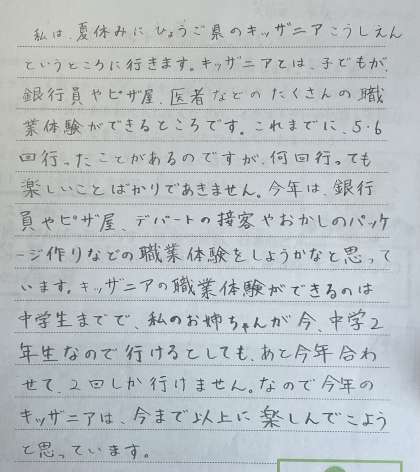 私は、夏休みにひょうご県のキッザニアこうしえん
というところに行きます。キッザニアとは、子どもが、
銀行員やピザ屋、医者などのたくさんの職
業体験ができるところです。これまでに、5・6
回行ったことがあるのですが、何回行っても
楽しいことばかりであきません。今年は、銀行
員やピザ屋、デパートの接客やおかしのパッケ
ージ作りなどの職業体験をしようかなと思って
います。キッザニアの職業体験ができるのは
中学生までで、私のお姉ちゃんが今、中学2
年生なので行けるとしても、あと今年合わ
せて、2回しか行けません。なので今年の
キッザニアは、今まで以上に楽しんでこよう
と思っています。